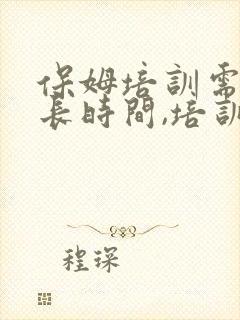 保姆培訓需
長時間,培訓
程琛